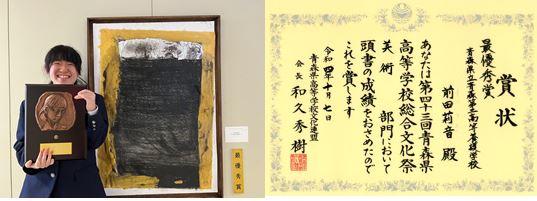 最優秀賞
賞状
最優秀賞
青森県立青森第二高等養護学校
前田莉音 殿
あなたは第四十三回青森県
高等学校総合文化祭
美術 部門において
頭書の成績をおさめたので
これを賞します
令和四年十月七日
青森県高等学校文化連盟
会長 和久秀樹